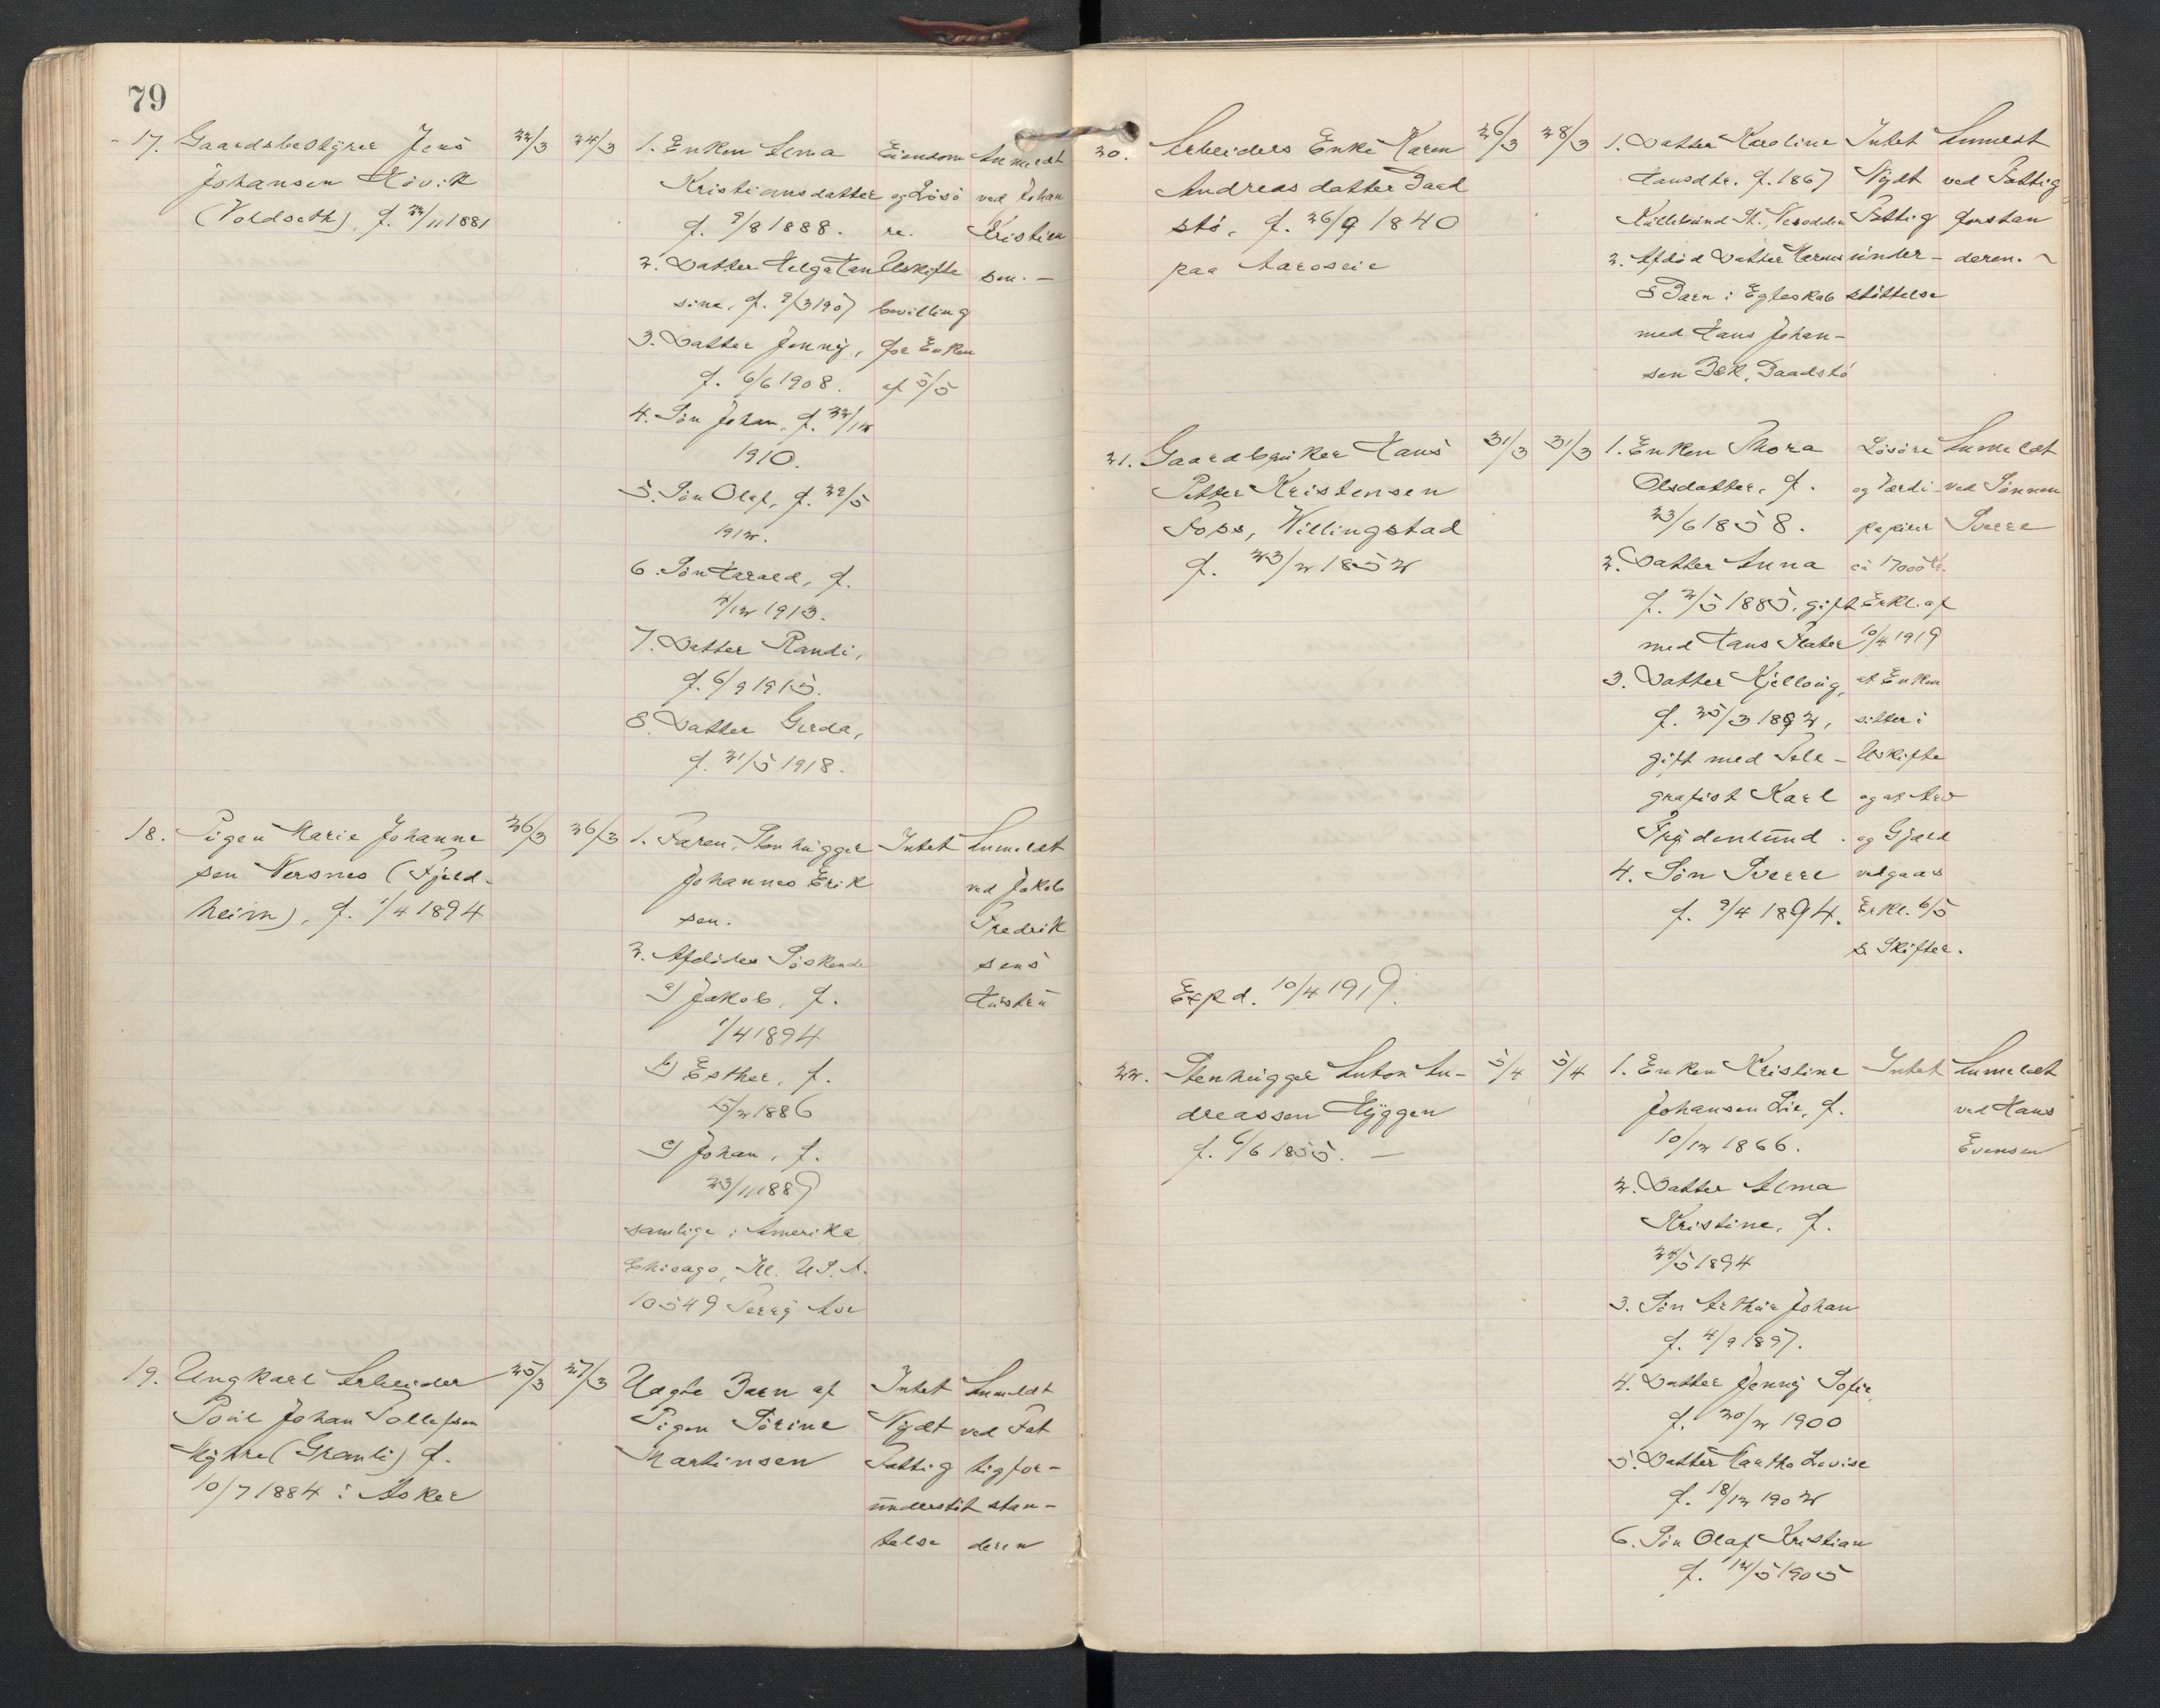 79
17. Gaardsbestyrer Jens
Johansen Hövik
(Voldseth), f. 22/11 1881
22/3
24/3
1. Enken Alma
Kristiansdatter
f. 9/8 1888.
2. Datter Helga Han
sine, f. 9/3 1907
3. Datter Jenny,
f. 6/6 1908.
4. Sön Johan, f. 22/12
1910.
5. Sön Olaf, f. 29/5
1912.
6. Sön Harald, f.
4/12 1913.
7. Datter Randi,
f. 6/9 1915.
8. Datter Gerda,
f. 21/5 1918.
Eiendom
og Lösö
re.
Uskifte
bevilling
for Enken
af 5/5
Anmeldt
ved Johan
Kristian
sen. -
18. Pigen Marie Johanne
sen Nersnes (Fjeld-
heim), f. 1/4 1894
26/3
26/3
1. Faren, Stenhugger
Johannes Erik
sen.
2. Afdödes Söskende
a) Jakob, f.
1/4 1894
b) Esther, f.
15/2 1886
c) Johan, f.
23/11 1889
samlige i Amerika,
Chicago, Ill. U.S.A.
10549 Perry Ave
Intet
Anmeldt
ved Jakob
Fredrik
sens
Hustru
19. Ungkarl Arbeider
Poul Johan Tollefsen
Myhre (Granli) f.
10/7 1884 i Asker
25/3
27/3
Uægte Barn af
Pigen Sörine
Martinsen
Intet
Nydt
Fattig
understöt
telse
Anmeldt
ved Fat
tigfor-
stan-
deren
20. Arbeiders Enke Karen
Andreasdatter Baad
stö, f. 26/9 1840
paa Aaroseie
26/3
28/3
1. Datter Karoline
Hansdtr. f. 1867
St., Nesodden
2. Afdöd Datter
5 Barn i Egteskab
med Hans Johan-
sen Bek, Baadstö
Intet
Nydt
Fattig
under-
stöttelse
Anmeldt
ved Fattig
forstan
deren. -
21. Gaardbruker Hans
Petter Kristensen
Foss, Willingstad
f. 23/2 1852
31/3
31/3
1. Enken Thora
Olsdatter, f.
23/6 1858.
2. Datter Anna
f. 2/5 1885, gift
med Hans Slater
3. Datter Kjellaug,
f. 25/3 1892,
gift med Tele-
grafist Karl
Frydenlund.
4. Sön Sverre
f. 9/4 1894.
Lösöre
og Værdi-
papirer
ca 17000 Kr.
Erkl. af
10/4 1919
at Enken
sitter i
Uskifte
og at Arv
og Gjæld
vedgaas
Erkl. 6/5
s. Skifter.
Anmeldt
ved Sönnen
Sverre
Expd. 10/4 1919.
22. Stenhugger Anton An-
dreassen Hyggen
f. 6/6 1855. -
5/4
5/4
1. Enken Kristine
Johansen Lie, f.
10/12 1866.
2. Datter Alma
Kristine, f.
24/5 1894
3. Sön Arthur Johan
f. 4/9 1897.
4. Datter Jenny Sofie,
f. 20/2 1900
5. Datter Martha Lovise
f. 18/12 1902
6. Sön Olaf Kristian
f. 12/5 1905
Intet
Anmeldt
ved Hans
Evensen